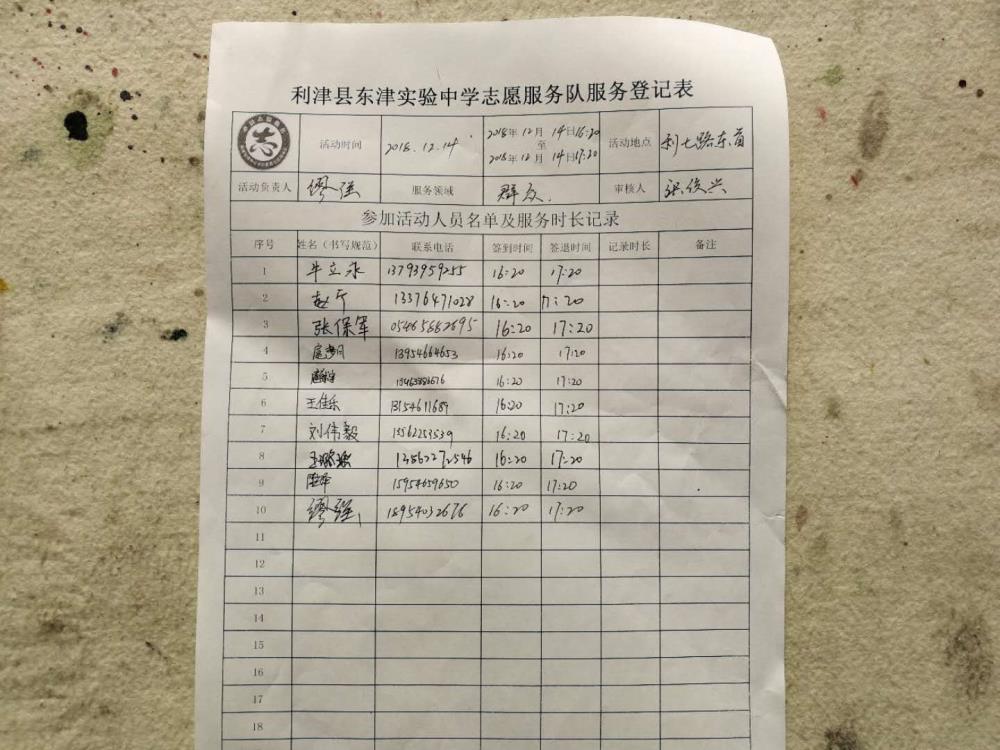 利津县东津实验中学志愿服务队服务登记表
志
活动时间 2018.12.14 2018年12月14日16:20 至 2018年12月14日17:20 活动地点 利七路东首
活动负责人 缪强 服务领域 群众. 审核人 张俊兴
参加活动人员名单及服务时长记录
序号 姓名（书写规范） 联系电话 签到时间 签退时间 记录时长 备注
1 牛立永 13793959255 16:20 17:20
2 赵 13376471028 16:20 17:20
3 张保军 05465682695 16:20 17:20
4 13954664653 16:20 17:20
5 16:20 17:20
6 王佳乐 13154611689 16:20 17:20
7 刘伟毅 13562253539 16:20 17:20
8 16:20 17:20
9 15954659650 16:20 17:20
10 缪强 18954032676 16:20 17:20
11
12
13
14
15
16
17
18